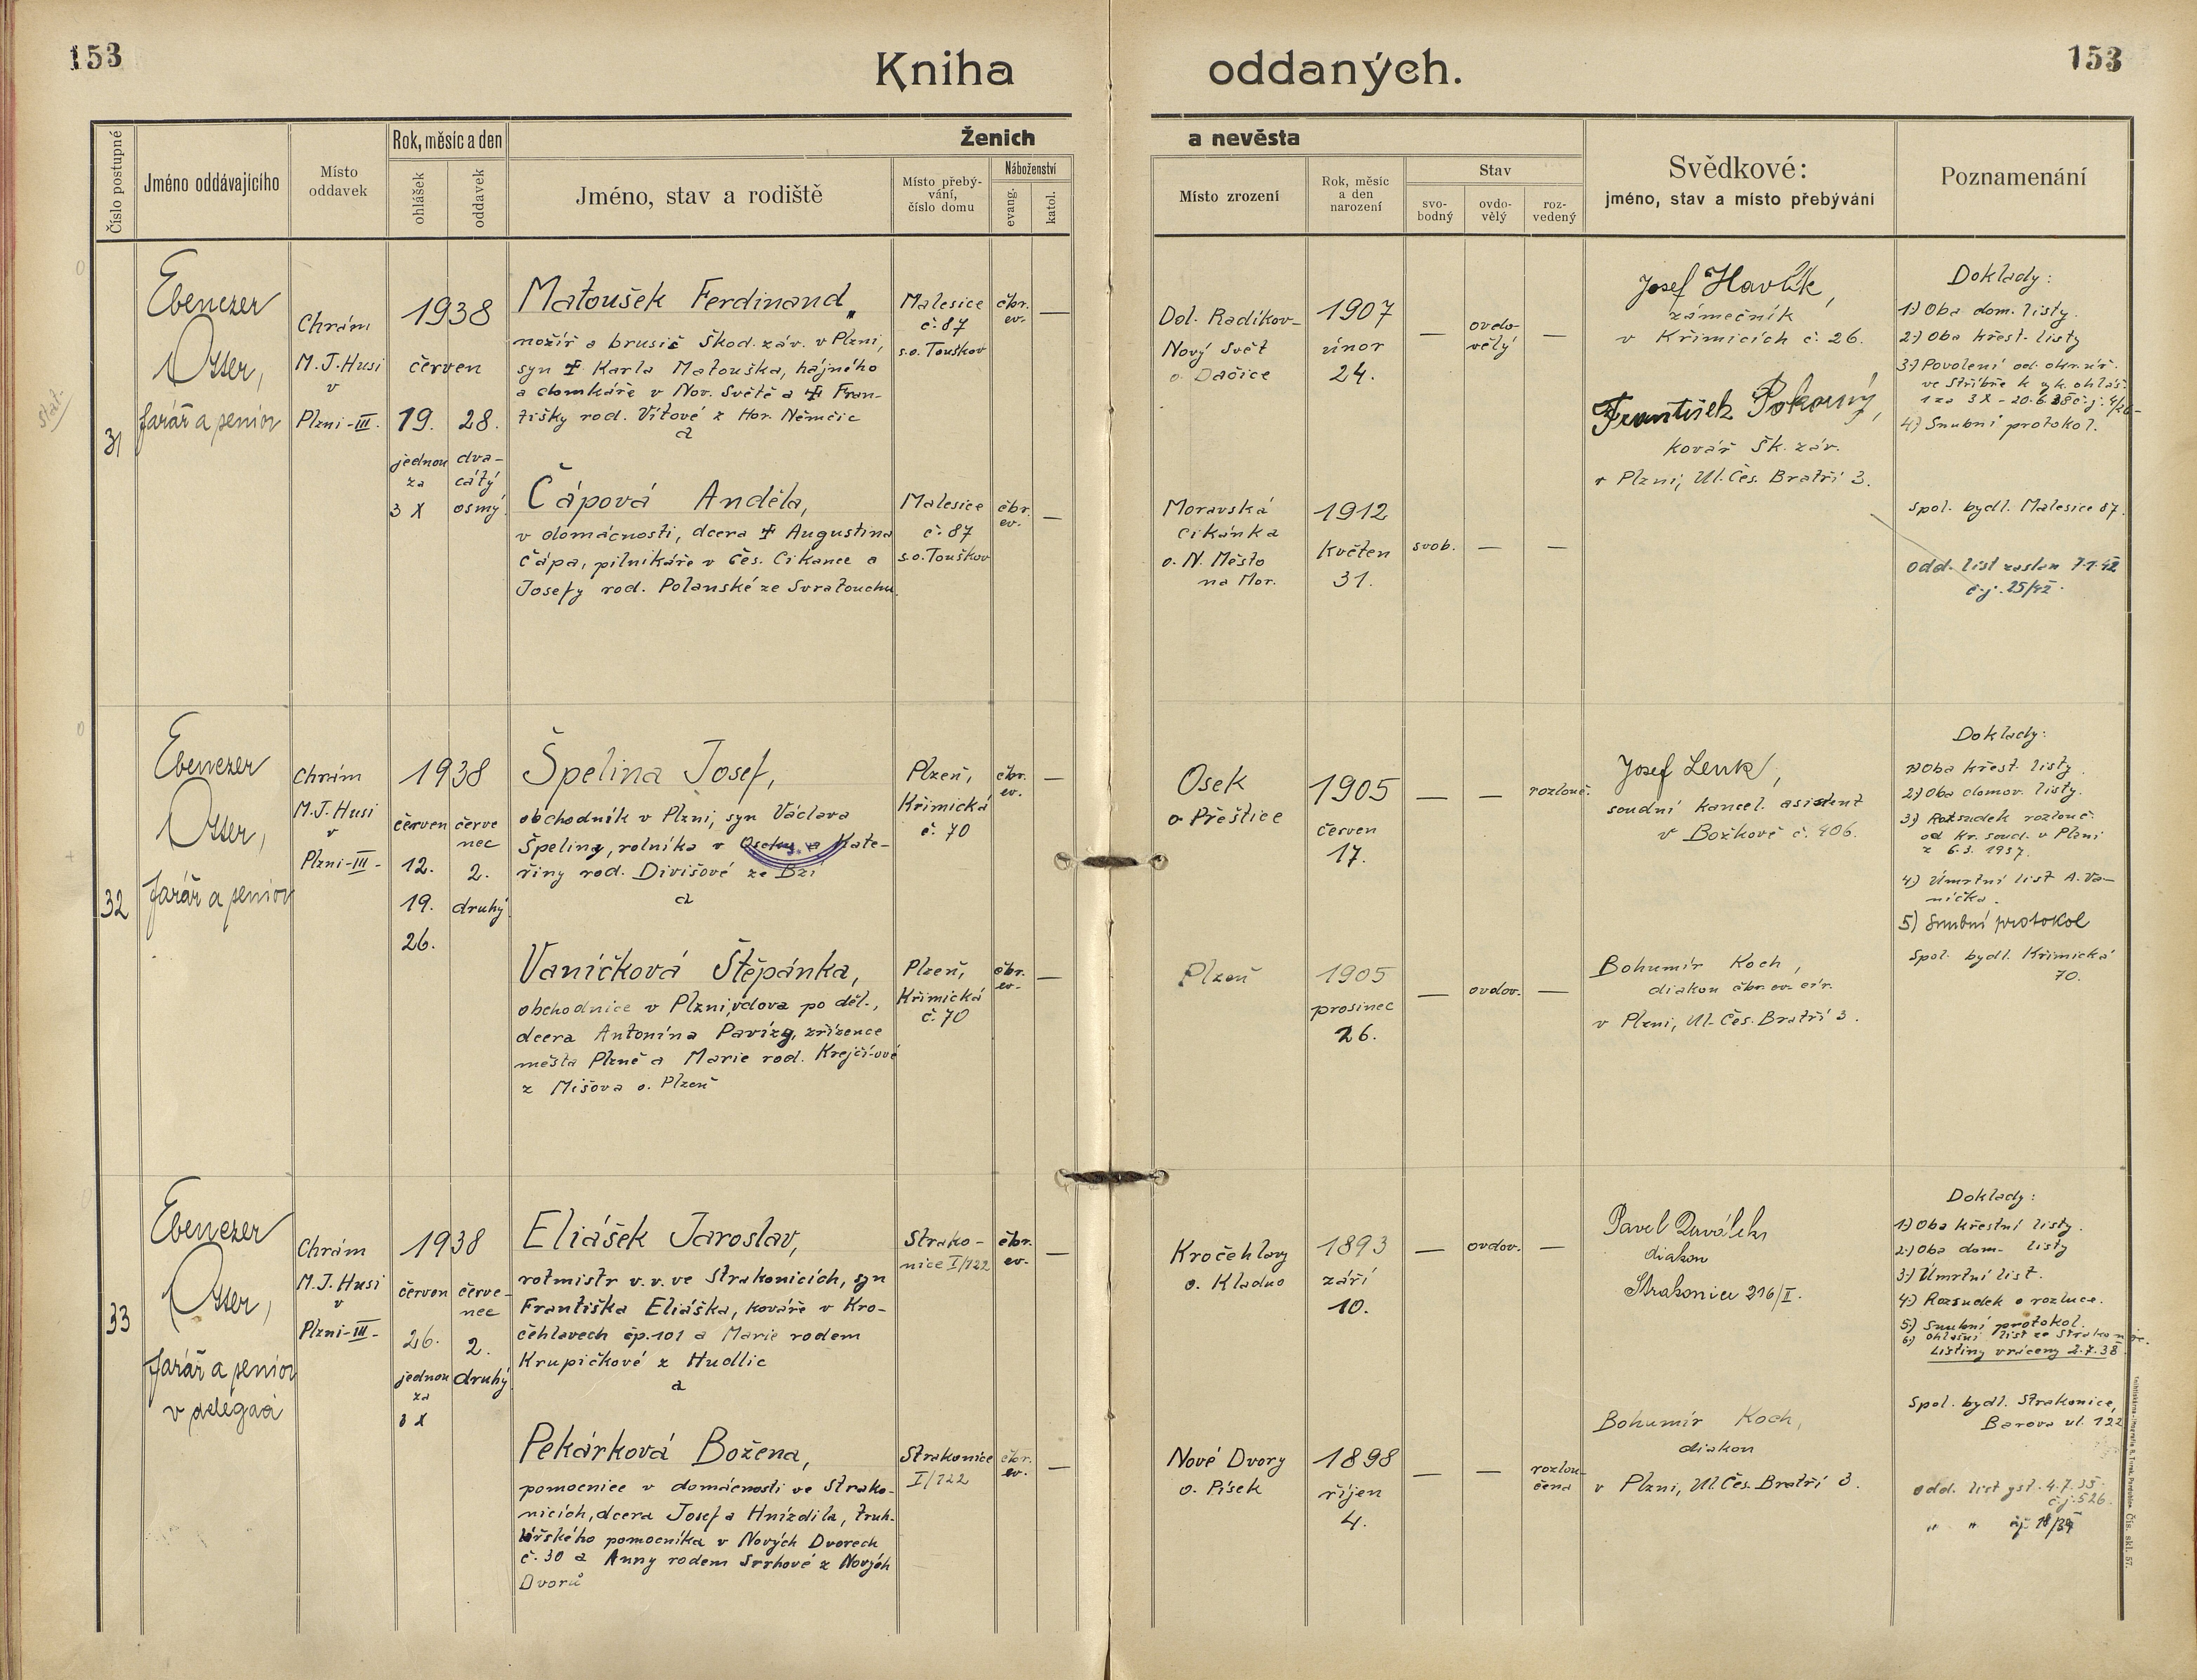 153
Kniha
oddaných.
153
Číslo postupné
Jméno oddávajícího
Místo
oddavek
Rok, měsíc a den
ohlášek
oddavek
Ženich
Jméno, stav a rodiště
Místo přebý-
vání,
číslo domu
Náboženství
evang.
katol.
a nevěsta
Místo zrození
Rok, měsíc
a den
narození
Stav
svo-
bodný
ovdo-
vělý
roz-
vedený
Svědkové:
jméno, stav a místo přebývání
Poznamenání
31
Ebenezer
Otter,
farář a senior
Chrám
M.J.Husi
v
Plzni-III.
1938
červen
19.
jednou
za
3 X
28.
dva-
cátý
osmý.
Matoušek Ferdinand,
nožíř a brusič Škod. záv. v Plzni,
syn ✝ Karla Matouška, hájného
a domkáře v Nov. Světě a ✝ Fran-
tišky rod. Vítové z Hor. Němčic
a
Malesice
č. 87
s.o. Touškov
čbr.
ev.
—
Čápová Anděla,
v domácnosti, dcera ✝ Augustina
Čápa, pilnikáře v Čes. Cikance a
Josefy rod. Polanské ze Svratouchu.
Malesice
č. 87
s.o. Touškov
čbr.
ev.
—
Dol. Radikov-
Nový Svět
o. Dačice
1907
únor
24.
—
ovdo-
vělý
—
Moravská
Cikánka
o. N. Město
na Mor.
1912
květen
31.
svob.
—
—
Josef Havlík,
zámečník
v Křimicích č. 26.
František Pokorný,
kovář Šk. záv.
v Plzni, Ul. Čes. Bratří 3.
Doklady:
1) Oba dom. listy.
2) Oba křest. listy
3) Povolení od. okr. úř.
ve Stříbře k vyk. ohláš.
1 za 3 X - 20.6.38 č.j. 4/26-
4) Snubní protokol.
Spol. bydl. Malesice 87.
Odd. list zaslán 7.1.42
č.j. 25/42.
32
Ebenezer
Otter,
farář a senior
Chrám
M.J. Husi
v
Plzni-III-
1938
červen
12.
19.
26.
červe
nec
2.
druhý.
Špelina Josef,
obchodník v Plzni, syn Václava
Špeliny, rolníka v Oseku a Kate-
řiny rod. Divišové ze Bzí
a
Plzeň,
Křimická
č. 70
čbr.
ev.
—
Vaníčková Štěpánka,
obchodnice v Plzni, vdova po děl.,
dcera Antonína Pavízy, zřízence
města Plzně a Marie rod. Krejčí-ové
z Mišova o. Plzeň
Plzeň,
Křimická
č. 70
čbr.
ev.
—
Osek
o Přeštice
1905
červen
17.
—
—
rozlouč.
Plzeň
1905
prosinec
26.
—
ovdov.
—
Josef Lenk,
soudní kancel. asistent
v Božkově č. 406.
Bohumír Koch,
diakon čbr. ev. cír.
v Plzni, Ul. Čes. Bratří 3.
Doklady:
1) Oba křest. listy.
2) Oba domov. listy.
3) Rozsudek rozlouč.
od Kr. soud. v Plzni
z 6.3. 1937.
4) Úmrtní list A. Va-
níčka.
5) Snubní protokol
Spol. bydl. Křimická
70.
33
Ebenezer
Otter,
farář a senior
v delegaci
Chrám
M.J. Husi
v
Plzni-III-
1938
červen
26.
jednou
za
3 X
červe-
nec
2.
druhý.
Eliášek Jaroslav,
rotmistr v.v. ve Strakonicích, syn
Františka Eliáška, kováře v Kro-
čehlavech čp. 101 a Marie rodem
Krupičkové z Hudlic
a
Strako-
nice I/122
čbr.
ev.
—
Pekárková Božena,
pomocnice v domácnosti ve Strako-
nicích, dcera Josefa Hnízdila, truh-
lářského pomocníka v Nových Dvorech
č. 30 a Anny rodem Srrhové z Nových
Dvorů
Strakonice
I/122
čbr.
ev.
—
Kročehlavy
o. Kladno
1893
září
10.
—
ovdov.
—
Nové Dvory
o. Písek
1898
říjen
4.
—
—
rozlou-
čená
Pavel
diakon
Strakonice 216/I.
Bohumír Koch,
diakon
v Plzni, Ul. Čes. Bratří 3.
Doklady:
1) Oba křestní listy.
2) Oba dom. listy
3) Úmrtní list.
4) Rozsudek o rozluce.
5) Snubní protokol.
6) Ohlašní list ze Strakonic.
Listiny vráceny 2.7.38
Spol. bydl. Strakonice,
Barova ul. 122
odd. list
č.j. 526.
" " čj. 18/39
Čís. skl. 57.